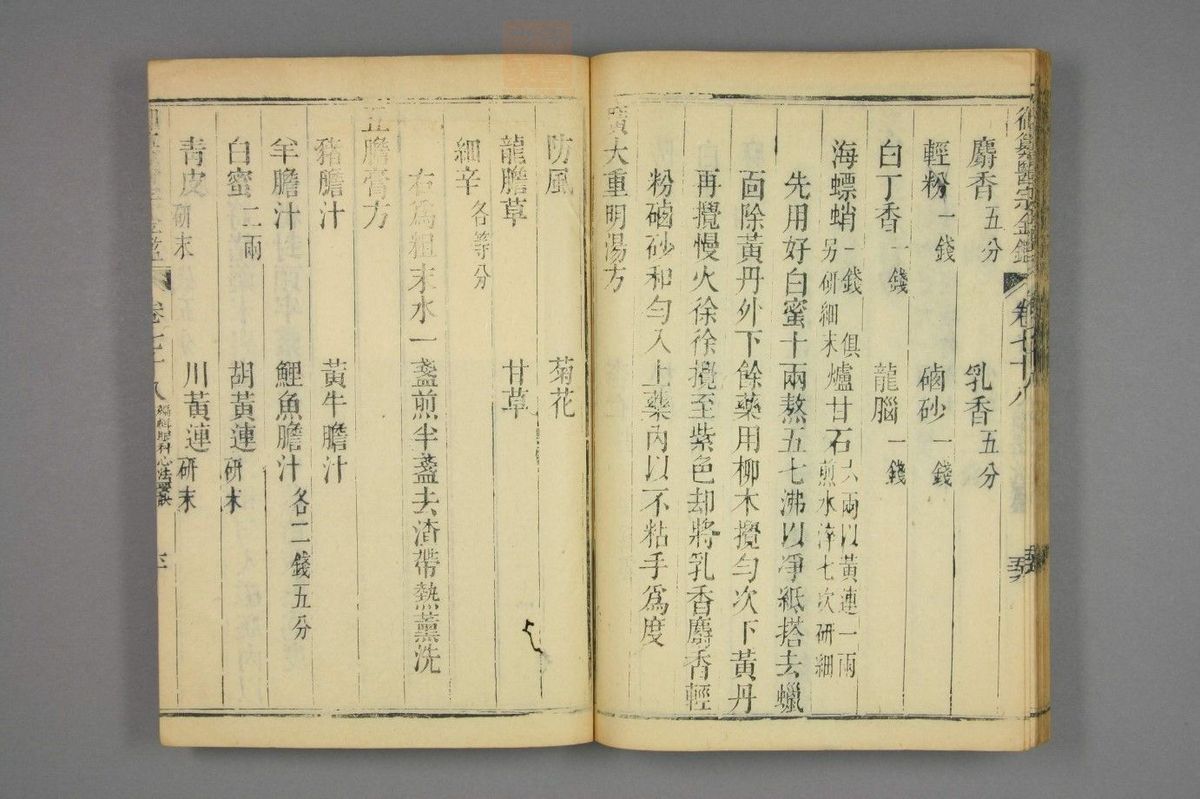 御纂醫宗金鑑 卷七十八
麝香五分 乳香五分
輕粉一錢 硇砂一錢
白丁香一錢 龍腦一錢
海螵蛸一錢另研細末俱 爐甘石六兩以黃連一兩煎水淬七次研細
先用好白蜜十兩熬五七沸以淨紙搭去蠟
面除黃丹外下餘藥用柳木攪勻次下黃丹
再攪慢火徐徐攪至紫色却將乳香麝香輕
粉硇砂和勻入上藥內以不粘手爲度
廣大重明湯方
防風 菊花
龍膽草 甘草
細辛各等分
右爲粗末水一盞煎半盞去渣帶熱薰洗
五膽膏方
豬膽汁 黃牛膽汁
羊膽汁 鯉魚膽汁各二錢五分
白蜜二兩 胡黃連研末
靑皮研末 川黃連研末
卷七十八 編輯眼科心法要訣